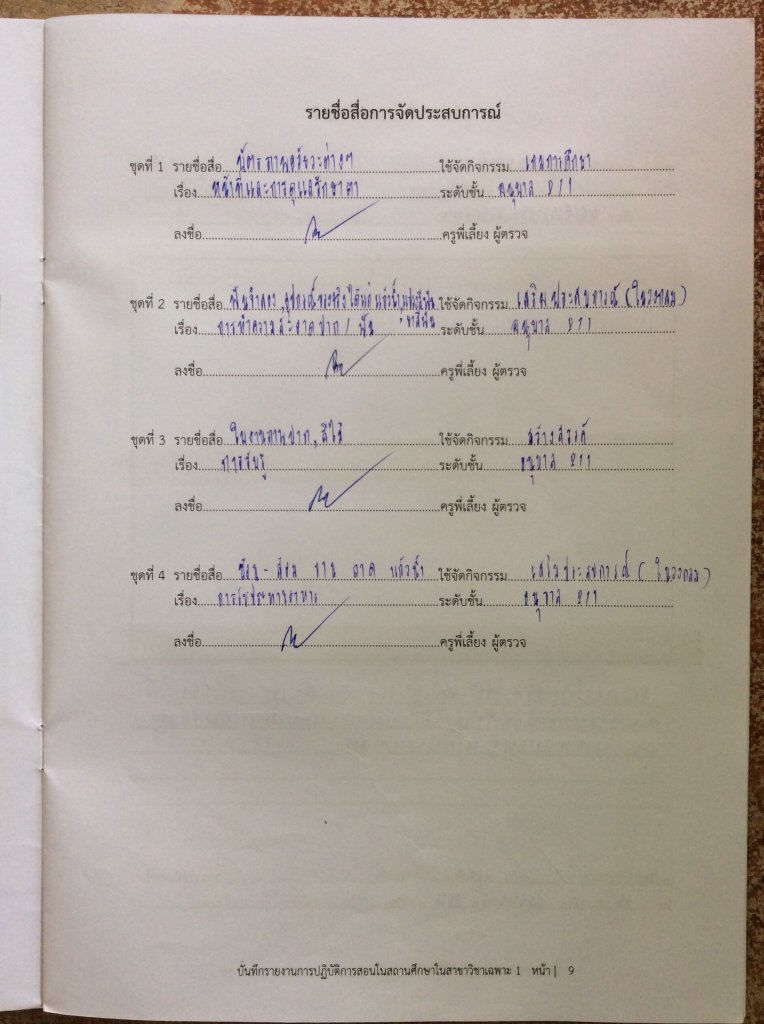 รายชื่อสื่อการจัดประสบการณ์
ชุดที่ 1 รายชื่อสื่อ บัตรภาพอวัยวะต่างๆ ใช้จัดกิจกรรม เกมการศึกษา
เรื่อง หน้าที่และการดูแลรักษาตา ระดับชั้น อนุบาล 2/1
ลงชื่อ ครูพี่เลี้ยง ผู้ตรวจ
ชุดที่ 2 รายชื่อสื่อ ฟันจำลอง, อุปกรณ์ของจริงได้แก่ แก้วน้ำ, แปรงสีฟัน ใช้จัดกิจกรรม เสริมประสบการณ์ (ในวงกลม)
, ยาสีฟัน
เรื่อง การทำความสะอาดปาก / ฟัน ระดับชั้น อนุบาล 2/1
ลงชื่อ ครูพี่เลี้ยง ผู้ตรวจ
ชุดที่ 3 รายชื่อสื่อ ใบงานภาพปาก, สีไม้ ใช้จัดกิจกรรม สร้างสรรค์
เรื่อง ระดับชั้น อนุบาล 2/1
ลงชื่อ ครูพี่เลี้ยง ผู้ตรวจ
ชุดที่ 4 รายชื่อสื่อ ช้อน - ส้อม จาน ถาด แก้วน้ำ ใช้จัดกิจกรรม เสริมประสบการณ์ (ในวงกลม)
เรื่อง การรับประทานอาหาร ระดับชั้น อนุบาล 2/1
ลงชื่อ ครูพี่เลี้ยง ผู้ตรวจ
บันทึกรายงานการปฏิบัติการสอนในสถานศึกษาในสาขาวิชาเฉพาะ 1 หน้า | 9